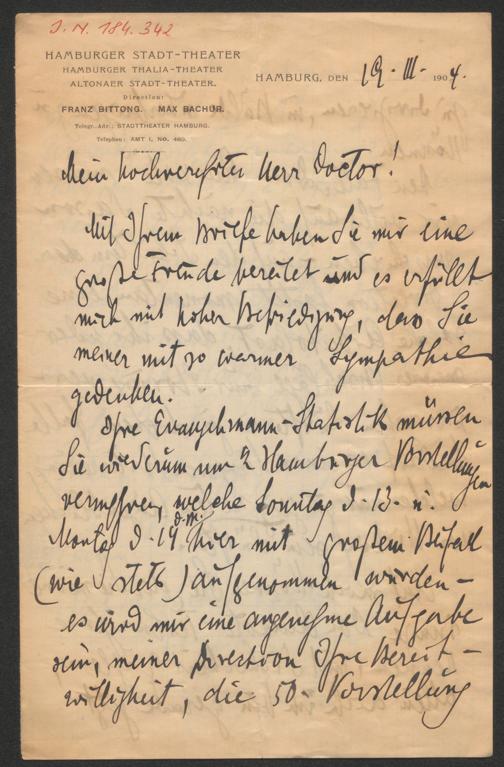 J. N. 184.342
HAMBURGER STADT-THEATER
HAMBURGER THALIA-THEATER
ALTONAER STADT-THEATER.
Direction:
FRANZ BITTONG. MAX BACHUR.
Telegr.-Adr.: STADTTHEATER HAMBURG.
Telephon: AMT I, No. 460.
HAMBURG, DEN 19. III. 1904.
Mein hochverehrter Herr Doctor!
Mit Ihrem Briefe haben Sie mir eine
große Freude bereitet und es erfüllt
mich mit hoher Befriedigung, dass Sie
meiner mit so warmer Sympathie
gedenken.
Ihre Evangelimann-Statistik müssen
Sie wiederum um 2 Hamburger Vorstellungen
vermehren, welche Sonntag d. 13. u.
Montag d. 14 d. M. hier mit großem Beifall
(wie stets) aufgenommen wurden –
es wird mir eine angenehme Aufgabe
sein, meiner Direction Ihre Bereit-
willigkeit, die 50. Vorstellung